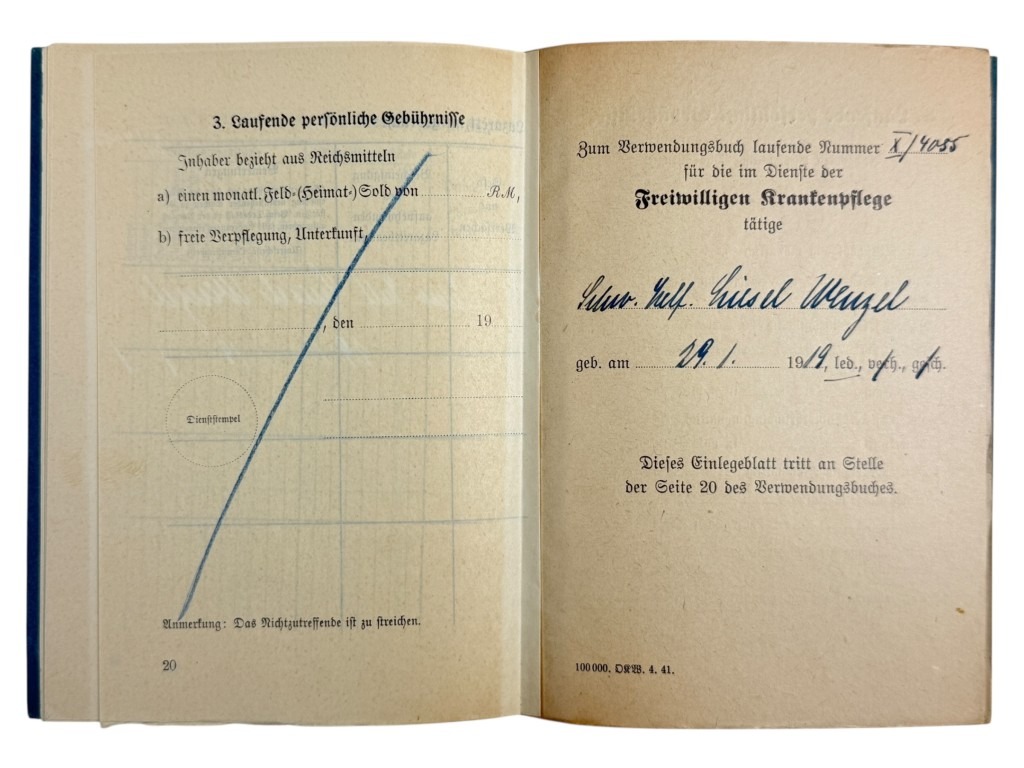 3. Laufende persönliche Gebührnisse
Inhaber bezieht aus Reichsmitteln
a) einen monatl. Feld-(Heimat-)Sold von ........ RM,
b) freie Verpflegung, Unterkunft,
, den ........ 19
Dienststempel
Anmerkung: Das Nichtzutreffende ist zu streichen.
20
Zum Verwendungsbuch laufende Nummer X/4055
für die im Dienste der
Freiwilligen Krankenpflege
tätige
Schw. Helf. Liesel Wenzel
geb. am 29. 1. 1919, led., verh., gesch.
Dieses Einlegeblatt tritt an Stelle
der Seite 20 des Verwendungsbuches.
100 000. DKW. 4. 41.